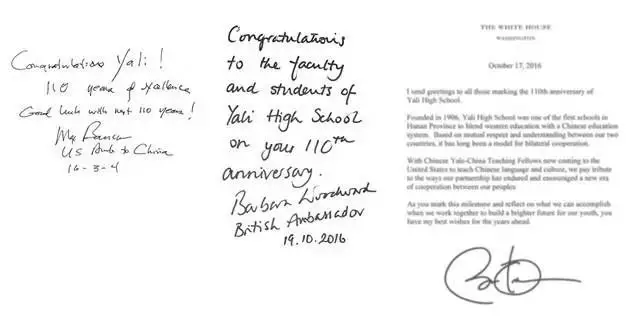 Congratulations Yali!
110 years of excellence
Good luck with next 110 years!
Max Baucus
US Amb to China
16-3-4
Congratulations
to the faculty
and students of
Yali High School
on your 110th
anniversary.
Barbara Woodward
British Ambassador
19.10.2016
THE WHITE HOUSE
WASHINGTON
October 17, 2016
I send greetings to all those marking the 110th anniversary of
Yali High School.
Founded in 1906, Yali High School was one of the first schools in
Hunan Province to blend western education with a Chinese education
system. Based on mutual respect and understanding between our two
countries, it has long been a model for bilateral cooperation.
With Chinese Yale-China Teaching Fellows now coming to the
United States to teach Chinese language and culture, we pay tribute
to the ways our partnership has endured and encouraged a new era
of cooperation between our peoples.
As you mark this milestone and reflect on what we can accomplish
when we work together to build a brighter future for our youth, you
have my best wishes for the years ahead.